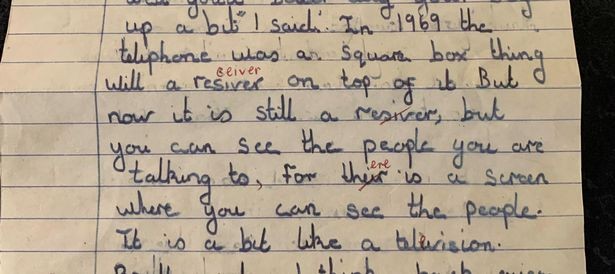 up a bit" I said. In 1969 the
teliphone was a square box thing
ceiver
will a resiver on top of it But
now it is still a resiver, but
you can see the people you are
ere
talking to, for their is a screen
where you can see the people.
It is a bit like a television.
I think